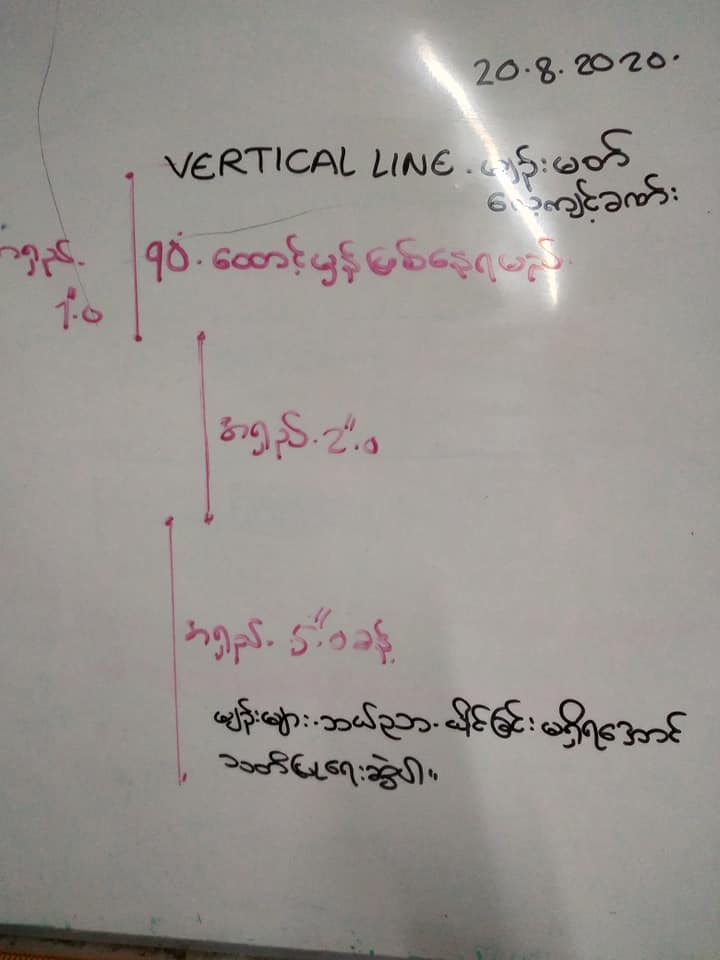 20.8.2020.
VERTICAL LINE. မျဉ်းမတ်
လေ့ကျင့်ခဏ်း
အရှည်. 90°. ထောင့်မှန်ဖြစ်နေရမည်.
1".0
အရှည်. 2".0
အရှည်. 5".0 ခန့်
မျဉ်းများ. ဘယ်ညာ. ယိုင်ခြင်း မရှိရအောင်
သတိပြုရေးဆွဲပါ။